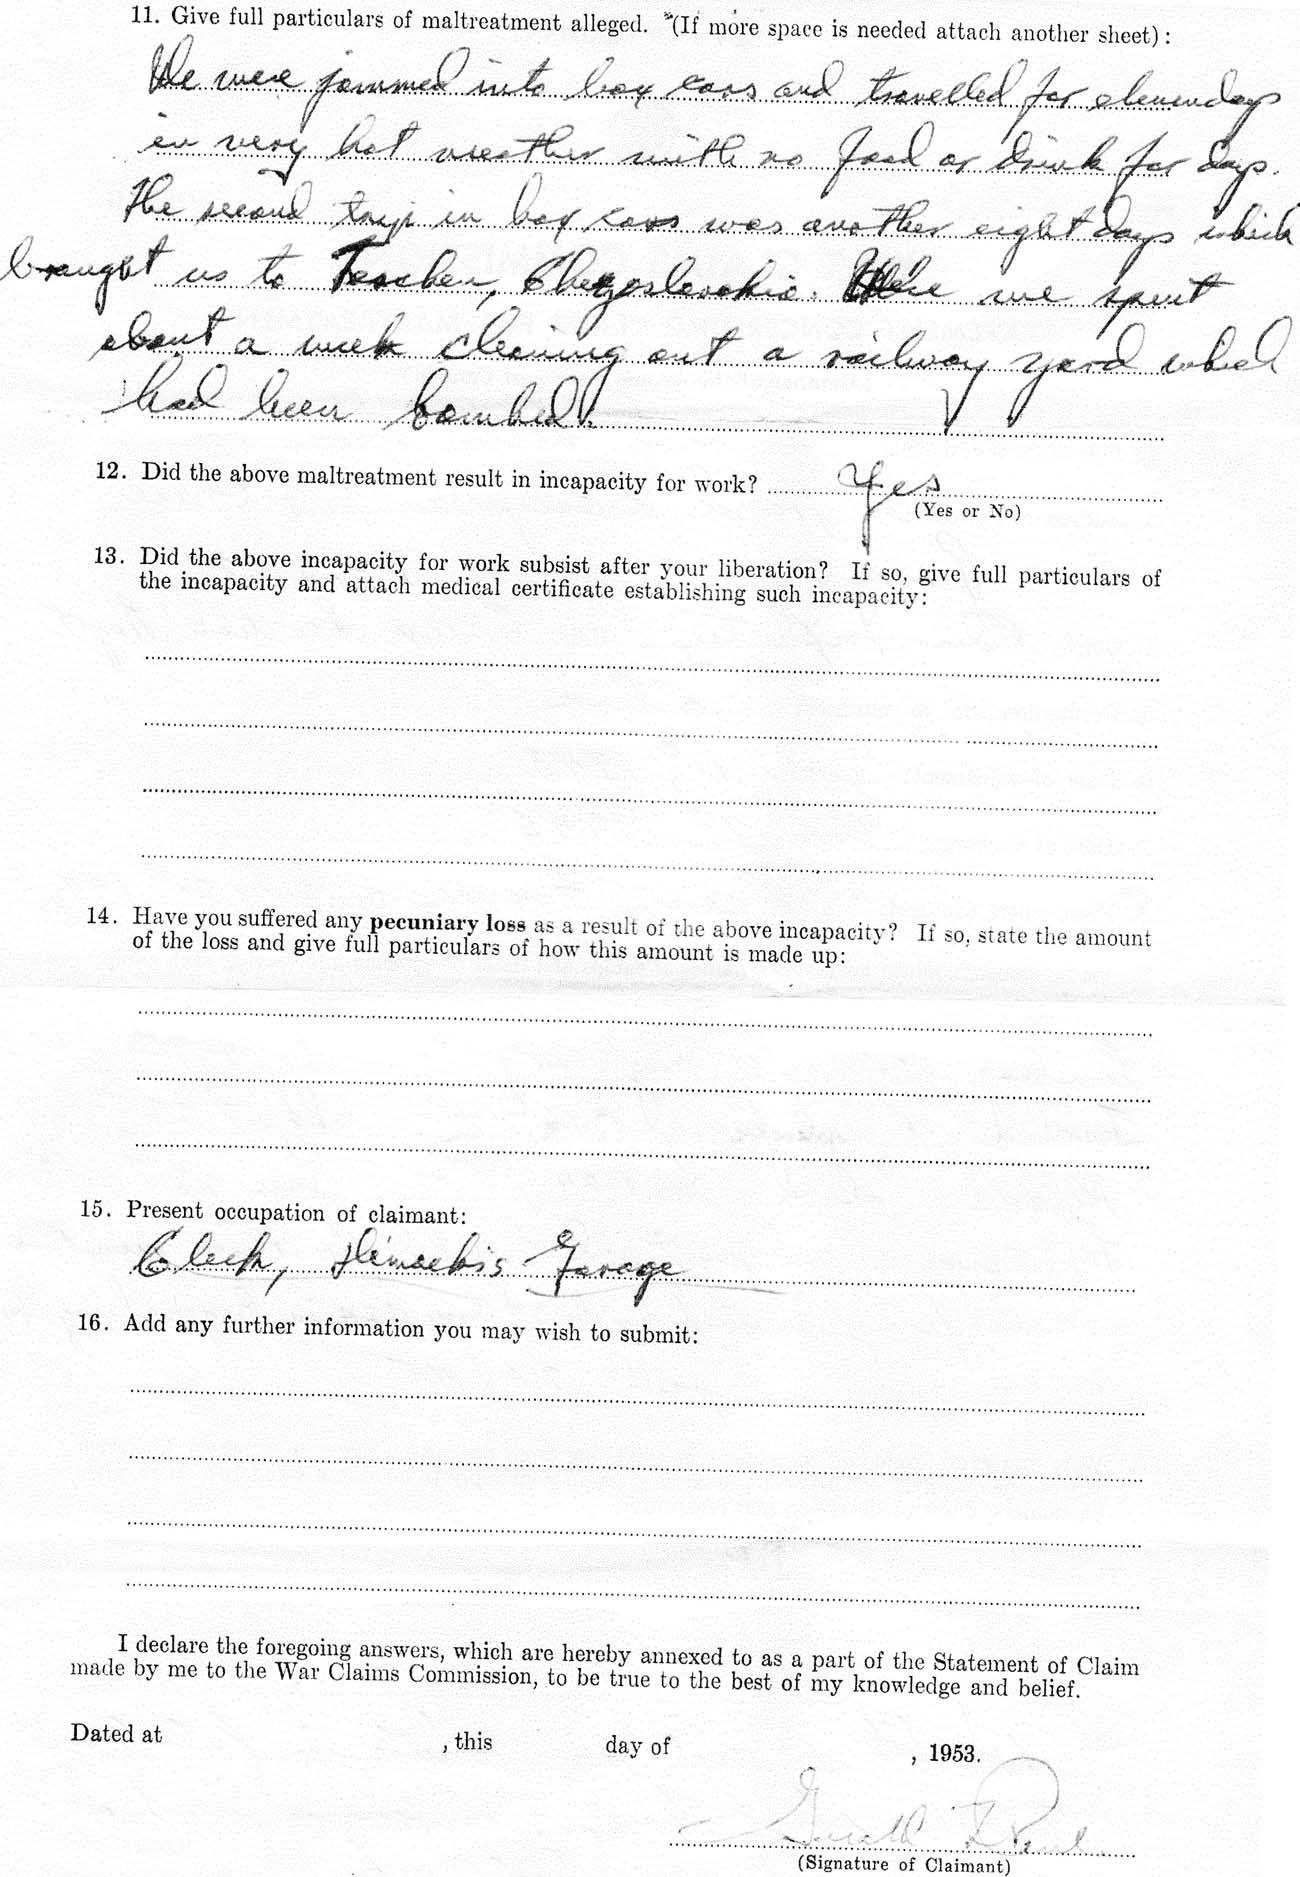 11. Give full particulars of maltreatment alleged. (If more space is needed attach another sheet):
We were jammed into box cars and travelled for eleven days
in very hot weather with no food or drink for days.
The second trip in box cars was another eight days which
brought us to Teschen, Chezoslovakia. Here we spent
about a week cleaning out a railway yard which
had been bombed.
12. Did the above maltreatment result in incapacity for work? Yes
(Yes or No)
13. Did the above incapacity for work subsist after your liberation? If so, give full particulars of
the incapacity and attach medical certificate establishing such incapacity:
14. Have you suffered any pecuniary loss as a result of the above incapacity? If so, state the amount
of the loss and give full particulars of how this amount is made up:
15. Present occupation of claimant:
Clerk, Garage
16. Add any further information you may wish to submit:
I declare the foregoing answers, which are hereby annexed to as a part of the Statement of Claim
made by me to the War Claims Commission, to be true to the best of my knowledge and belief.
Dated at , this day of , 1953.
Gerald
(Signature of Claimant)